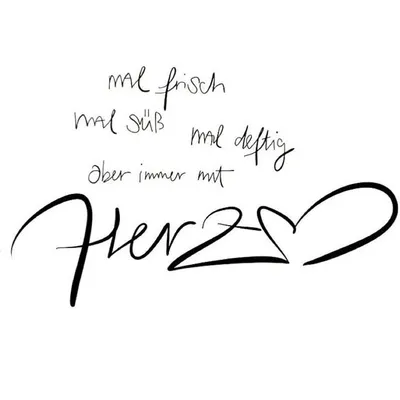 mal frisch
mal süß
mal deftig
aber immer mit
Herz